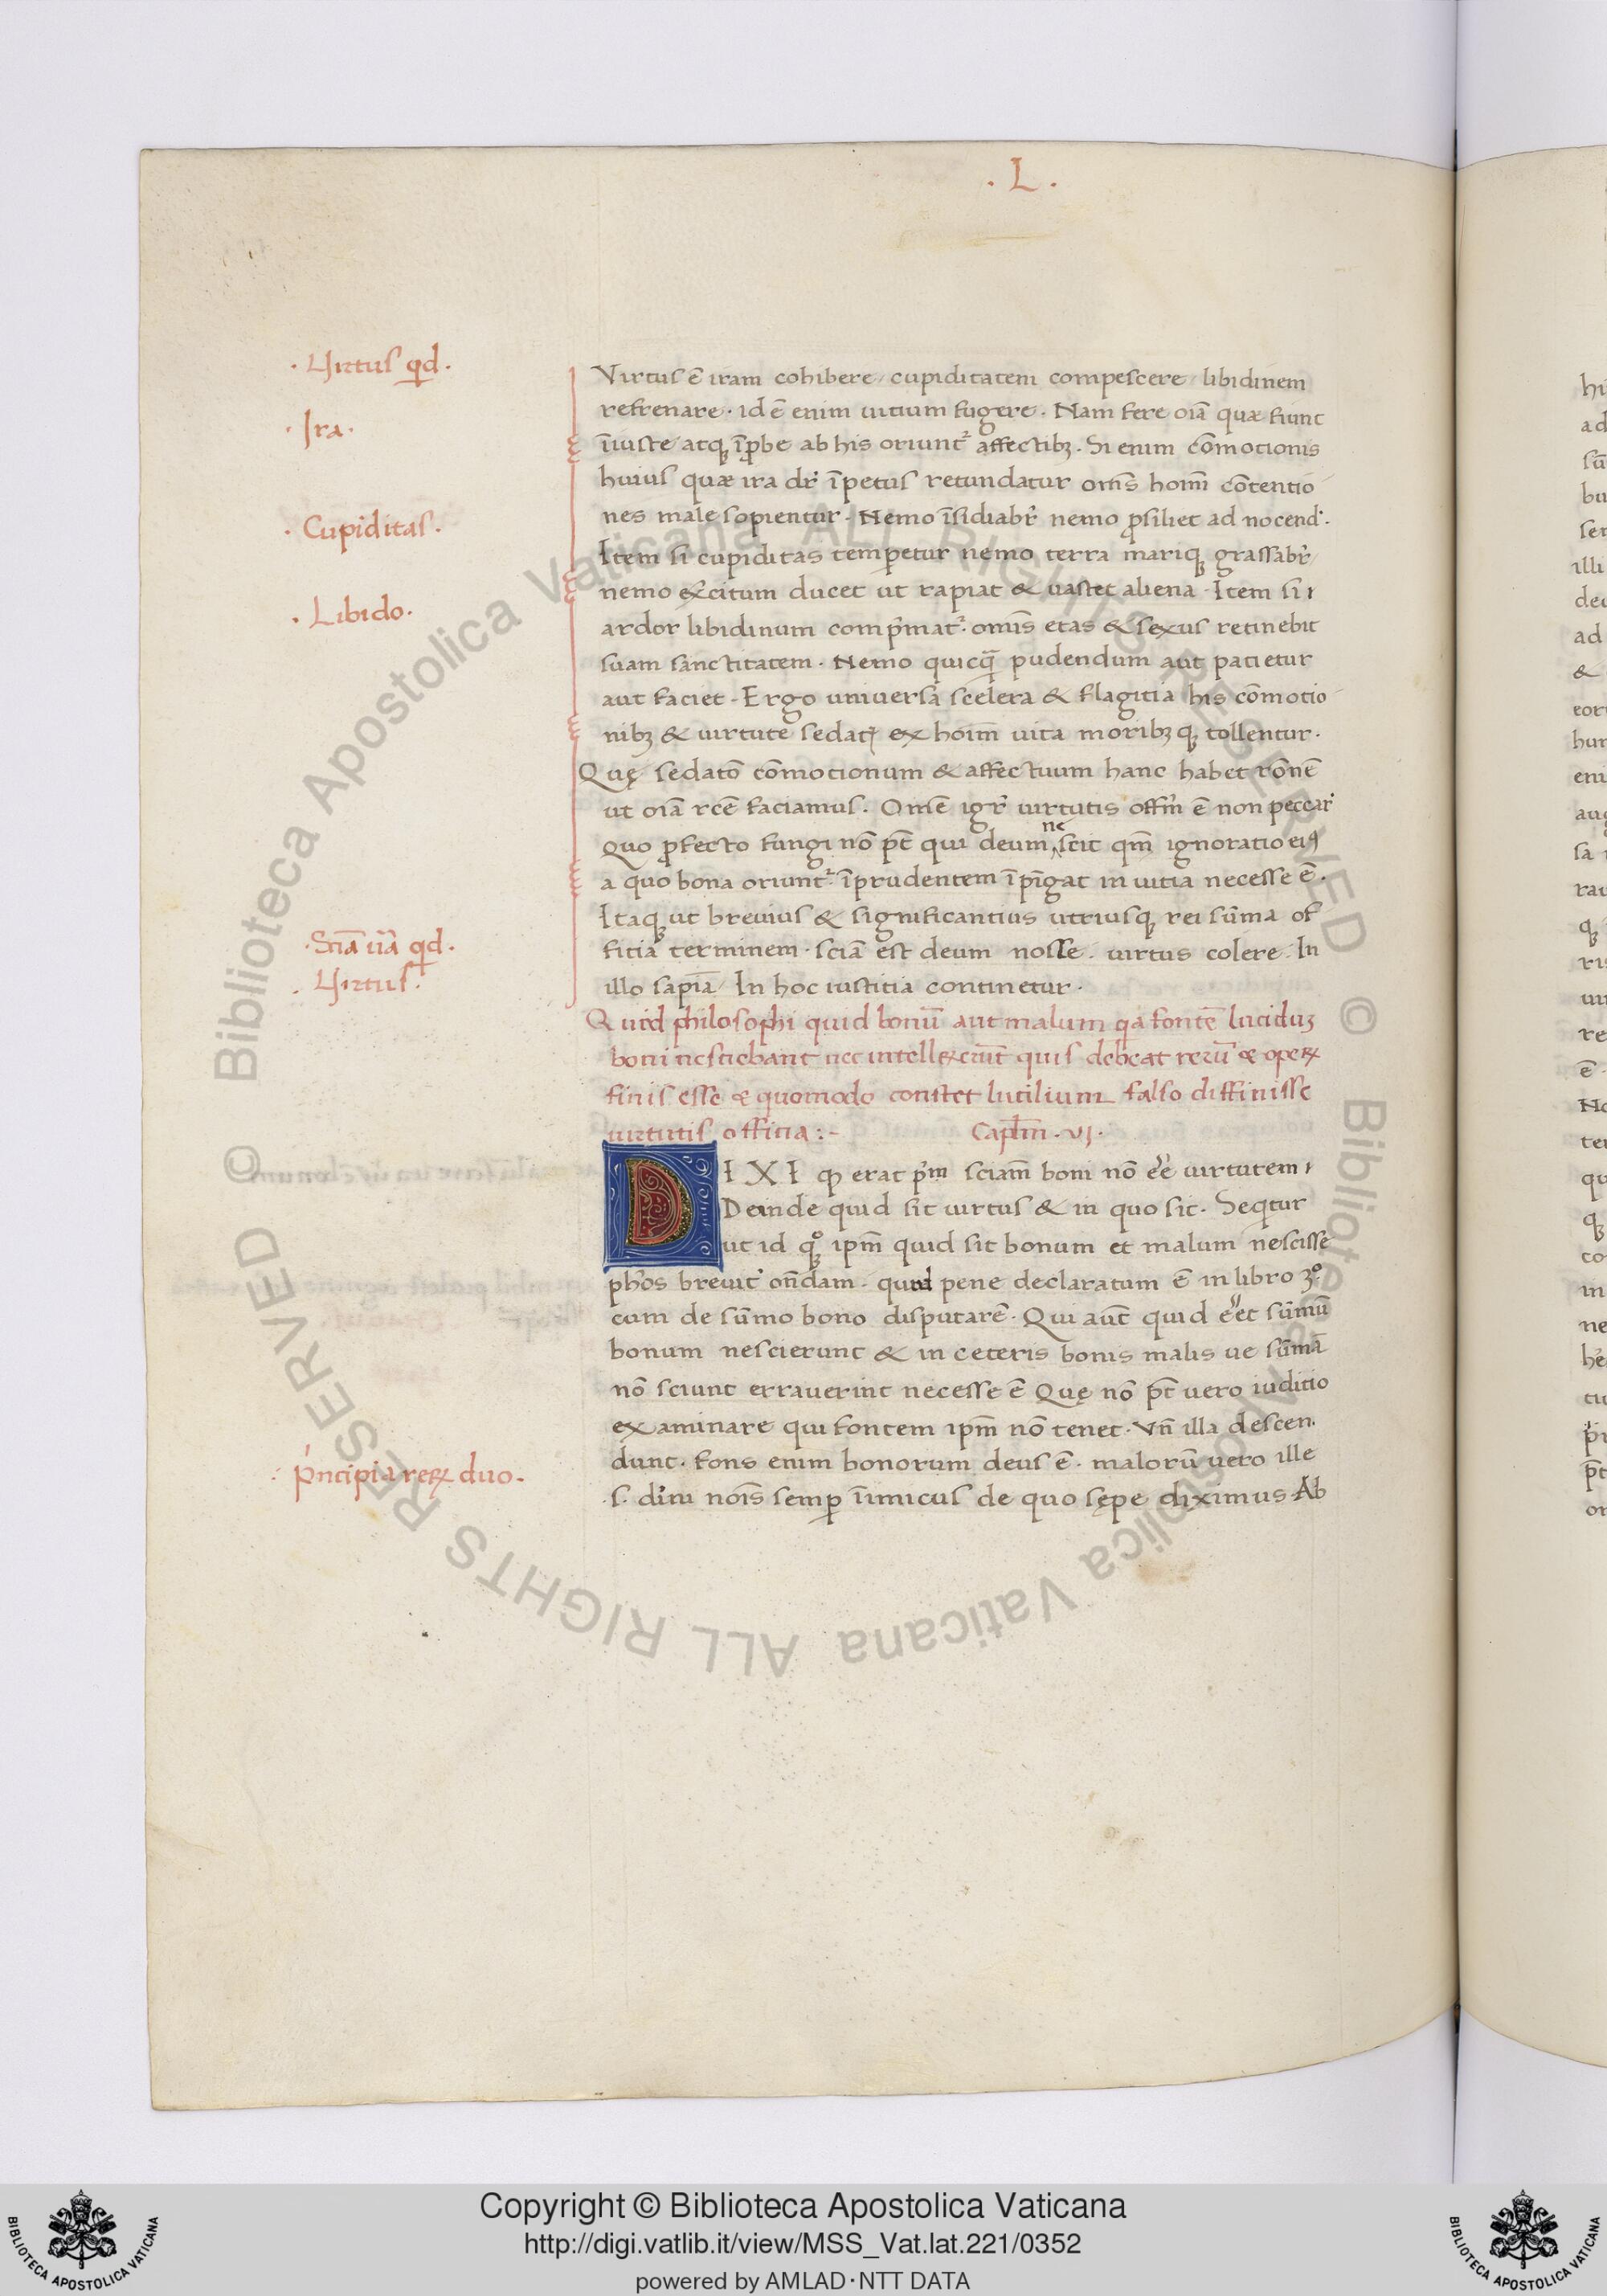 · L ·
· Virtus qd ·
· Ira ·
· Cupiditas ·
· Libido ·
· Sciā uā qd ·
· Virtus ·
· p̓ncipia reꝝ duo ·
Virtus ē iram cohibere / cupiditatem compescere / libidinem
refrenare · id ē enim uitium fugere · Nam fere oīa quæ fiunt
īiuste atqꝫ īꝓbe ab his oriunt᷑ affectibꝫ · Si enim cōmotionis
huius quæ ira dr̄ īpetus retundatur oms̄ homī cōtentio
nes male sopientur · Nemo īsidiabr̄ nemo ꝓsiliet ad nocend̓ ·
Item si cupiditas temꝑetur nemo terra mariqꝫ grassabr̄
nemo ex̄citum ducet ut rapiat & uastet aliena · Item si
ardor libidinum comp̓mat᷑ · omīs etas & sexus retinebit
suam sanctitatem · Nemo quicq̄ pudendum aut patietur
aut faciet · Ergo universa scelera & flagitia his cōmotio
nibꝫ & uirtute sedatꝭ ex hoīm uita moribꝫqꝫ tollentur ·
Quę sedatō cōmotionum & affectuum hanc habet rōnē
ut oīa rc̄e faciamus · Omē igr̄ uirtutis offm̄ ē non peccar̓
quo ꝓfecto fungi nō pt̄ qui deum nescit qm̄ ignoratio eiꝰ
a quo bona oriunt᷑ · īprudentem īpīgat in uitia necesse ē ·
Itaqꝫ ut brevius & significantius utriusqꝫ rei sūma of
ficia terminem · sciā est deum nosse · uirtus colere · In
illo sapīa / In hoc iustitia continetur ·
Quid philosophi quid bonū aut malum qa fontē luciduꝫ
boni nesciebant nec intellexerūt quis debeat rerū & opeꝝ
finis esse & quomodo constet lucilium falso diffinisse
uirtutis officia :- Caplm̄ · VI ·
DIXI qꝫ erat pͥm sciam̄ boni nō eē uirtutem
Deinde quid sit uirtus & in quo sit · Seqtur
ut id qꝫͦ ipm̄ quid sit bonum et malum nescisse
phōs breuit̓ on̄dam · quid pene declaratum ē in libro 3ͦ ·
cum de sūmo bono disputarē · Qui aūt quid eēt sūmū
bonum nescierunt & in ceteris bonis malis ue sūmā
nō sciunt errauerint necesse ē Quę nō pt̄ uero iuditio
examinare qui fontem ipm̄ nō tenet · Vn̄ illa descen
dunt · fons enim bonorum deus ē · malorū uero ille
· s · diuī noīs semꝑ īimicus de quo sępe diximus Ab
Copyright © Biblioteca Apostolica Vaticana
http://digi.vatlib.it/view/MSS_Vat.lat.221/0352
powered by AMLAD·NTT DATA
BIBLIOTECA APOSTOLICA VATICANA
BIBLIOTECA APOSTOLICA VATICANA
© Biblioteca Apostolica Vaticana ALL RIGHTS RESERVED © Biblioteca Apostolica Vaticana ALL RIGHTS RESERVED